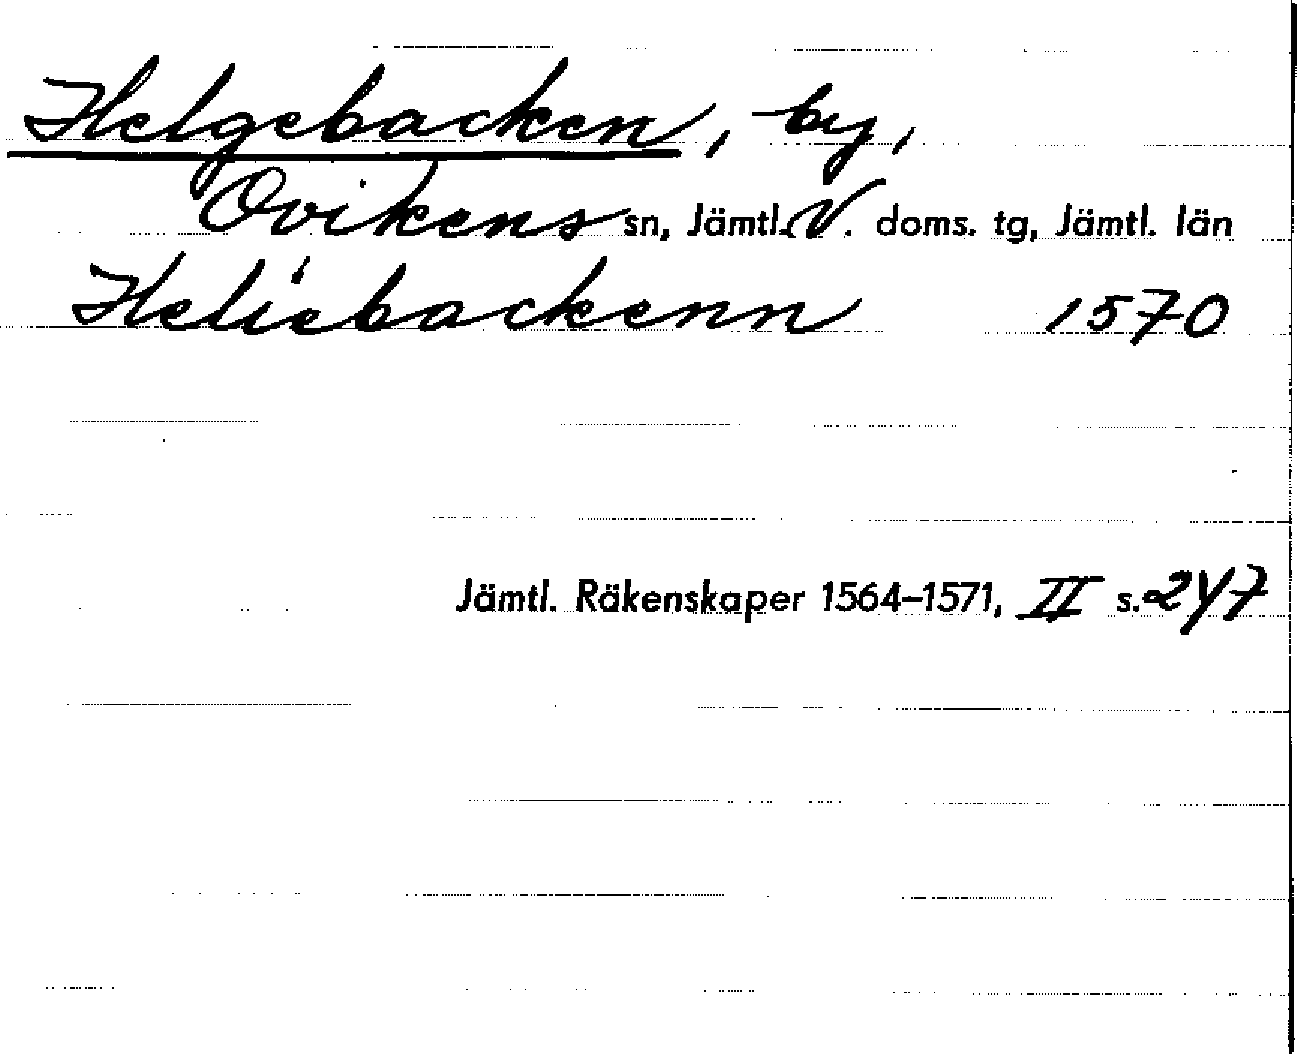 Helgebacken, by,
Ovikens sn, Jämtl. V. doms. tg, Jämtl. län
Heliebackenn 1570
Jämtl. Räkenskaper 1564-1571, II s. 247